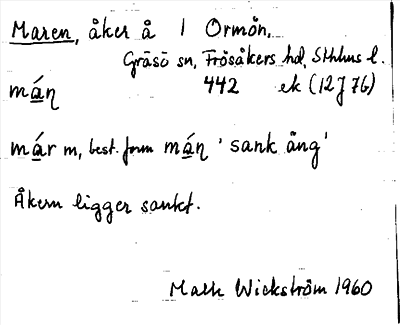 Maren, åker å 1 Ormön,
Gräsö sn, Frösåkers hd, Sthlms l.
mán 442 ek (12 J 76)
már m, best. form mán 'sank äng'
Åkern ligger sankt.
Mats Wickström 1960